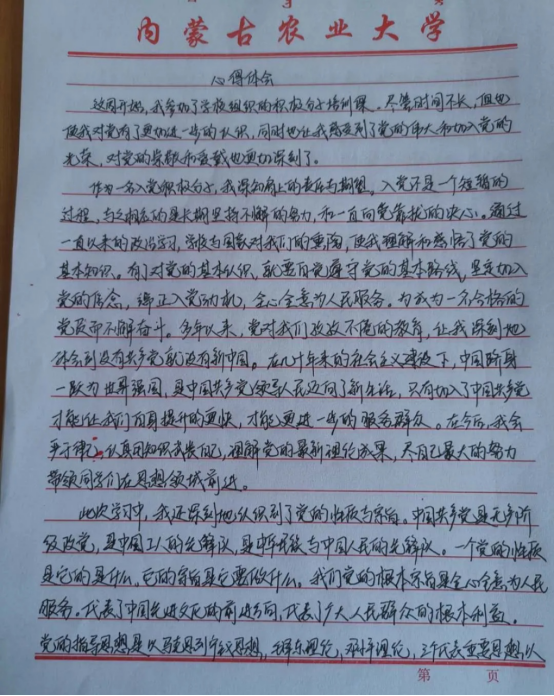 内蒙古农业大学
心得体会
这周开始，我参加了学校组织的积极分子培训课，尽管时间不长，但也
使我对党有了更加进一步的认识，同时也让我感受到了党的伟大和加入党的
光荣，对党的崇敬和爱戴也更加深刻了。
作为一名入党积极分子，我深知肩上的责任与期望，入党不是一个短暂的
过程，与之相应的是长期坚持不懈的努力，和一直向党靠拢的决心。通过
一直以来的政治学习，学校与国家对我们的重陶，使我理解和感悟了党的
基本知识。有了对党的基本认识，就要自觉遵守党的基本路线，坚定加入
党的信念，端正入党动机，全心全意为人民服务。为成为一名合格的
党员而不懈奋斗。多年以来，党对我们孜孜不倦的教育，让我深刻地
体会到没有共产党就没有新中国。在几十年来的社会主义建设下，中国跻身
一跃为世界强国，是中国共产党领导人民迈向了新生活，只有加入了中国共产党
才能让我们自身提升的更快，才能更进一步的服务群众。在今后，我会
严于律己，认真用知识武装自己，理解党的最新理论成果，尽自己最大的努力
带领同学们在思想领域前进。
此次学习中，我还深刻地认识到了党的性质与宗旨。中国共产党是无产阶
级政党，是中国工人的先锋队，是中华民族与中国人民的先锋队。一个党的性质
是它的是什么，它的宗旨是它要做什么。我们党的根本宗旨是全心全意为人民
服务。代表了中国先进文化的前进方向，代表了广大人民群众的根本利益。
党的指导思想是以马克思列宁主义思想，毛泽东理论，邓小平理论，三个代表重要思想，以
第 页